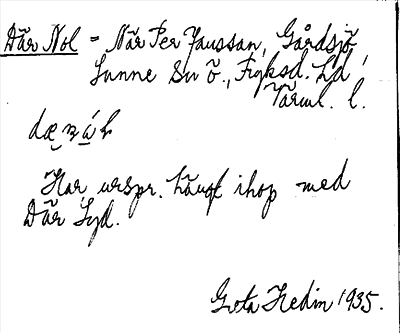 Där Nol = När Per Jansson, Gårdsjö,
Sunne Sn Ö., Fryksd. Hd,
Värml. l.
Har urspr. hängt ihop med
Där Syd.
Gota Hedin 1935.